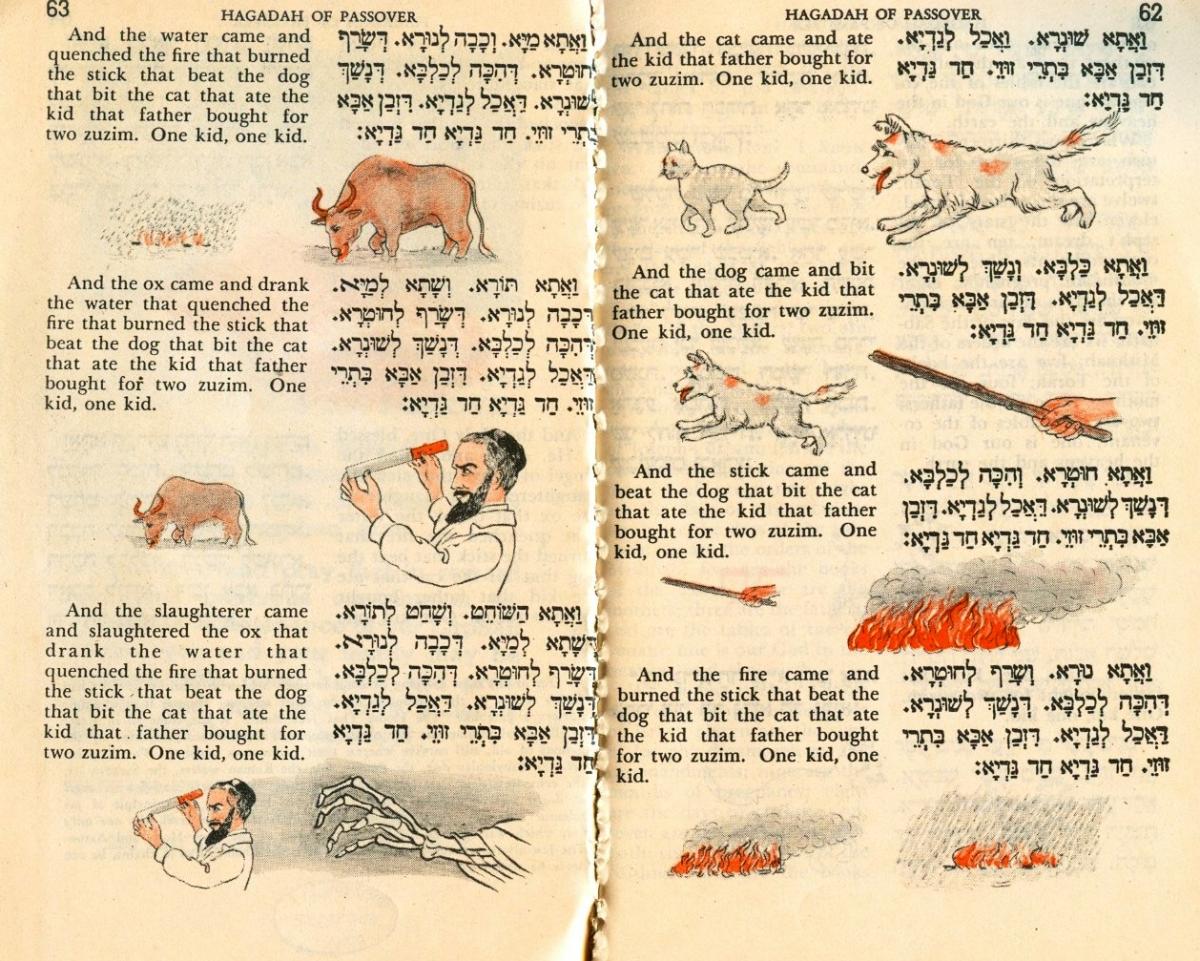 HAGADAH OF PASSOVER
62
And the cat came and ate
the kid that father bought for
two zuzim. One kid, one kid.
וַאֲתָא שׁוּנְרָא. וְאָכַל לְגַדְיָא.
דְּזַבַּן אַבָּא בִּתְרֵי זוּזֵי. חַד גַּדְיָא
חַד גַּדְיָא:
And the dog came and bit
the cat that ate the kid that
father bought for two zuzim.
One kid, one kid.
וַאֲתָא כַּלְבָּא. וְנָשַׁךְ לְשׁוּנְרָא.
דְּאָכַל לְגַדְיָא. דְּזַבַּן אַבָּא בִּתְרֵי
זוּזֵי. חַד גַּדְיָא חַד גַּדְיָא:
And the stick came and
beat the dog that bit the cat
that ate the kid that father
bought for two zuzim. One
kid, one kid.
וַאֲתָא חוּטְרָא. וְהִכָּה לְכַלְבָּא.
דְּנָשַׁךְ לְשׁוּנְרָא. דְּאָכַל לְגַדְיָא. דְּזַבַּן
אַבָּא בִּתְרֵי זוּזֵי. חַד גַּדְיָא חַד גַּדְיָא:
And the fire came and
burned the stick that beat the
dog that bit the cat that ate
the kid that father bought
for two zuzim. One kid, one
kid.
וַאֲתָא נוּרָא. וְשָׂרַף לְחוּטְרָא.
דְּהִכָּה לְכַלְבָּא. דְּנָשַׁךְ לְשׁוּנְרָא.
דְּאָכַל לְגַדְיָא. דְּזַבַּן אַבָּא בִּתְרֵי
זוּזֵי. חַד גַּדְיָא חַד גַּדְיָא:
63
HAGADAH OF PASSOVER
And the water came and
quenched the fire that burned
the stick that beat the dog
that bit the cat that ate the
kid that father bought for
two zuzim. One kid, one kid.
וַאֲתָא מַיָּא. וְכָבָה לְנוּרָא. דְּשָׂרַף
חוּטְרָא. דְּהִכָּה לְכַלְבָּא. דְּנָשַׁךְ
שׁוּנְרָא. דְּאָכַל לְגַדְיָא. דְּזַבַּן אַבָּא
בִּתְרֵי זוּזֵי. חַד גַּדְיָא חַד גַּדְיָא:
And the ox came and drank
the water that quenched the
fire that burned the stick that
beat the dog that bit the cat
that ate the kid that father
bought for two zuzim. One
kid, one kid.
וַאֲתָא תוֹרָא. וְשָׁתָא לְמַיָּא.
דְּכָבָה לְנוּרָא. דְּשָׂרַף לְחוּטְרָא.
דְּהִכָּה לְכַלְבָּא. דְּנָשַׁךְ לְשׁוּנְרָא.
דְּאָכַל לְגַדְיָא. דְּזַבַּן אַבָּא בִּתְרֵי
זוּזֵי. חַד גַּדְיָא חַד גַּדְיָא:
And the slaughterer came
and slaughtered the ox that
drank the water that
quenched the fire that burned
the stick that beat the dog
that bit the cat that ate the
kid that father bought for
two zuzim. One kid, one kid.
וַאֲתָא הַשּׁוֹחֵט. וְשָׁחַט לְתוֹרָא.
דְּשָׁתָא לְמַיָּא. דְּכָבָה לְנוּרָא.
דְּשָׂרַף לְחוּטְרָא. דְּהִכָּה לְכַלְבָּא.
דְּנָשַׁךְ לְשׁוּנְרָא. דְּאָכַל לְגַדְיָא.
דְּזַבַּן אַבָּא בִּתְרֵי זוּזֵי. חַד גַּדְיָא
חַד גַּדְיָא: